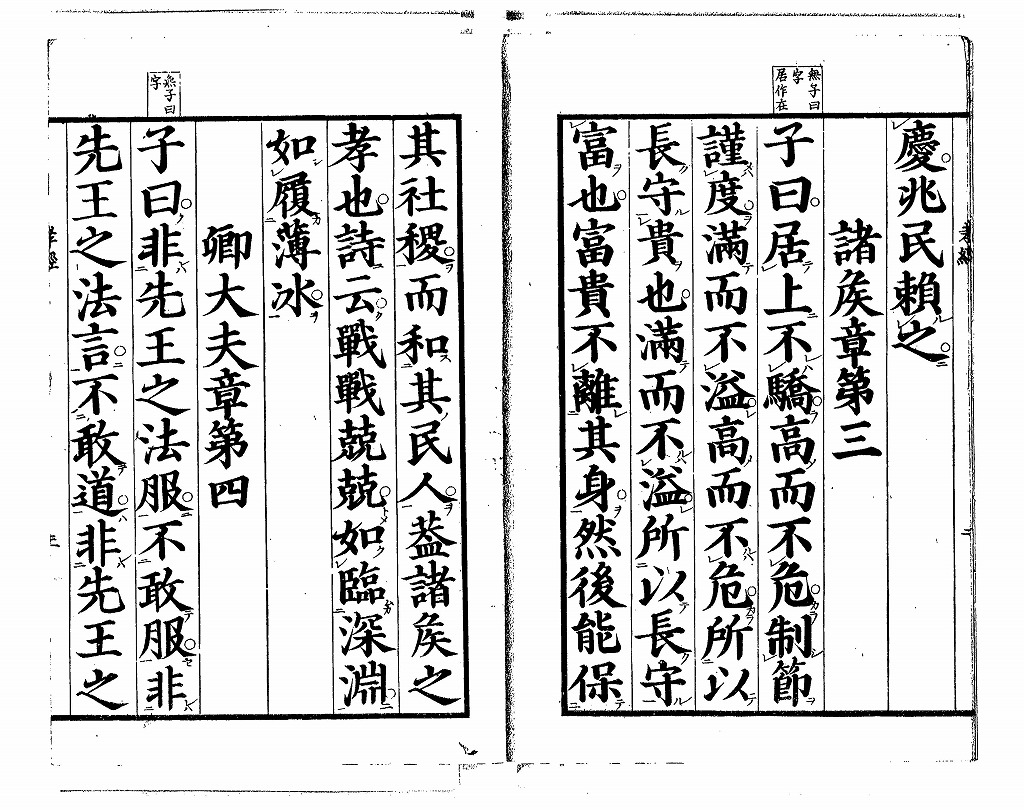 無子曰
字
居作在
慶兆民賴之
諸矦章第三
子曰居上不驕高而不危制節
謹度滿而不溢高而不危所以
長守貴也滿而不溢所以長守
富也富貴不離其身然後能保
無子曰
字
其社稷而和其民人葢諸矦之
孝也詩云戰戰兢兢如臨深淵
如履薄冰
卿大夫章第四
子曰非先王之法服不敢服非
先王之法言不敢道非先王之